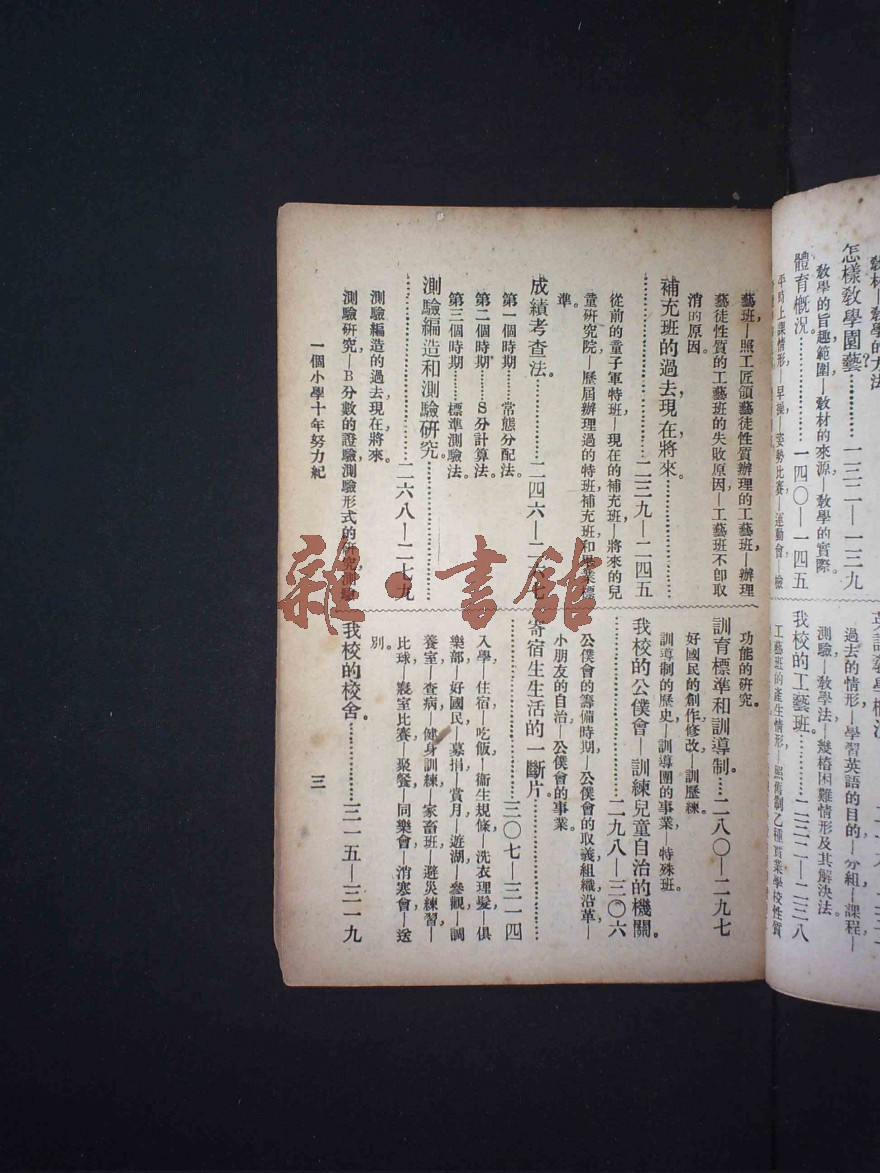 教材—教學的方法
怎樣教學園藝?…………一三二—一三九
教學的旨趣範圍—教材的來源—教學的實際
體育概況。…………一四〇—一四五
平時上課情形—早操—姿勢比賽—運動會—檢
過去的情形—學習英語的目的—分組—課程—
測驗—教學法—幾樁困難情形及其解決法。
我校的工藝班。…………二三二—二三八
工藝班的產生情形—照舊制乙種實業學校性質
藝班—照工匠領藝徒性質辦理的工藝班—辦理
藝徒性質的工藝班的失敗原因—工藝班不卽取
消的原因。
補充班的過去,現在,將來。
…………二三九—二四五
從前的童子軍特班—現在的補充班—將來的兒
童研究院—歷屆辦理過的特班補充班和畢業標
準。
成績考查法。…………二四六—二六七
第一個時期……常態分配法。
第二個時期……S分計算法。
第三個時期……標準測驗法。
測驗編造和測驗研究。…………
…………二六八—二七九
測驗編造的過去,現在,將來。
測驗研究—B分數的證驗,測驗形式的研究,測驗
功能的研究。
訓育標準和訓導制。……二八〇—二九七
好國民的創作,修改—訓歷練。
訓導制的歷史—訓導團的事業 特殊班。
我校的公僕會—訓練兒童自治的機關。
…………二九八—三〇六
公僕會的籌備時期—公僕會的取義,組織,沿革—
小朋友的自治—公僕會的事業。
寄宿生生活的一斷片。…………
…………三〇七—三一四
入學—住宿—吃飯—衞生規條—洗衣,理髮—俱
樂部—好國民—募捐—賞月—遊湖—參觀—調
養室—查病—健身訓練—家畜班—避災練習—
比球—寢室比賽—聚餐—同樂會—消寒會—送
別。
我校的校舍。…………三一五—三一九
一個小學十年努力紀
三
雜·書館